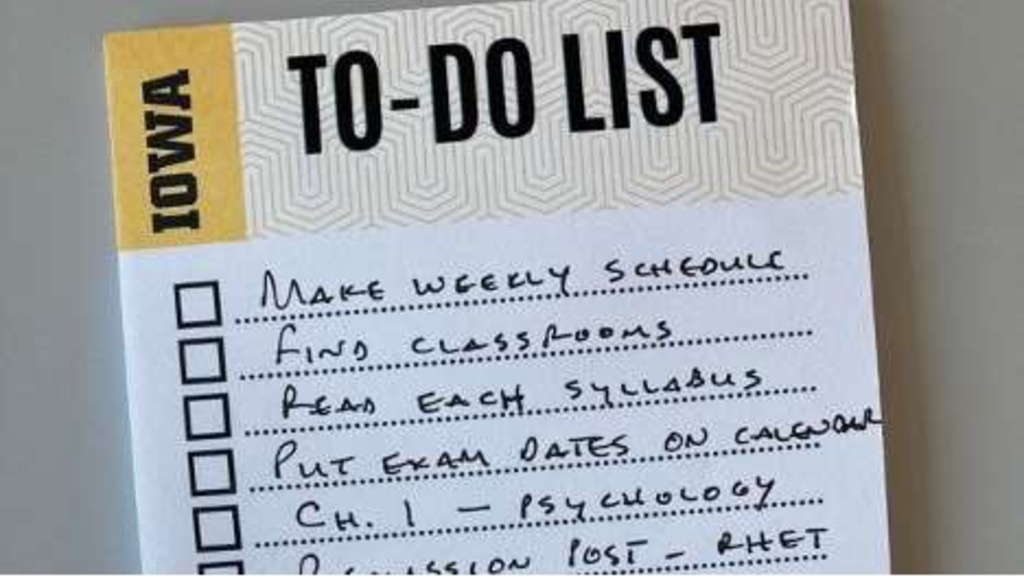 IOWA
TO-DO LIST
MAKE WEEKLY SCHEDULE
FIND CLASSROOMS
READ EACH SYLLABUS
PUT EXAM DATES ON CALENDAR
CH. 1 — PSYCHOLOGY
POST - RHET